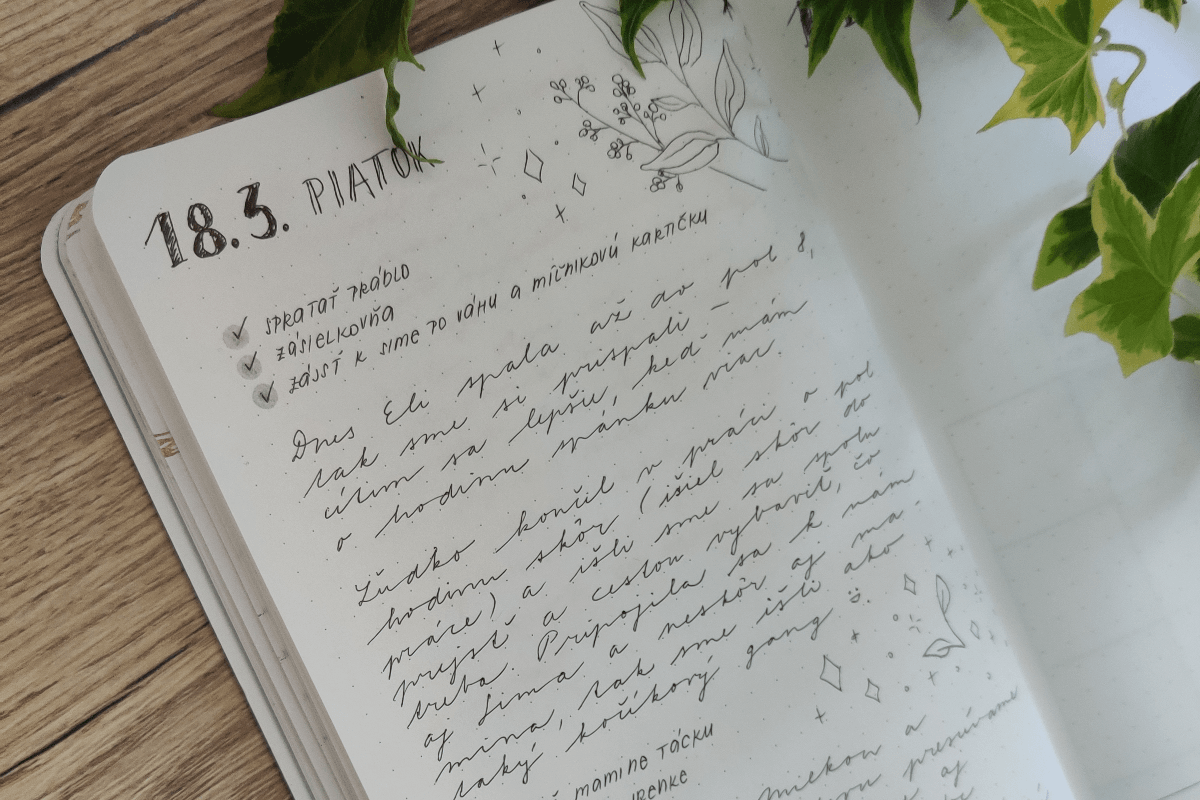 18.3. PIATOK
SPRATAŤ PRÁDLO
ZÁSIELKOVŇA
ZÁJSŤ K SIME PO VÁHU A MÍĽNIKOVÚ KARTIČKU
Dnes Eli spala až do pol 8,
tak sme si prispali –
cítim sa lepšie, keď mám
o hodinu spánku viac.
Ľudko končil v práci o pol
hodinu skôr (išiel skôr do
práce) a išli sme sa spolu
prejsť a cestou vybaviť, čo
treba. Pripojila sa k nám
aj Sima a neskôr aj ma-
mina, tak sme išli ako
taký kočíkový gang :).
MAMINE TÁCKU
mliekom a
presúvame
aj